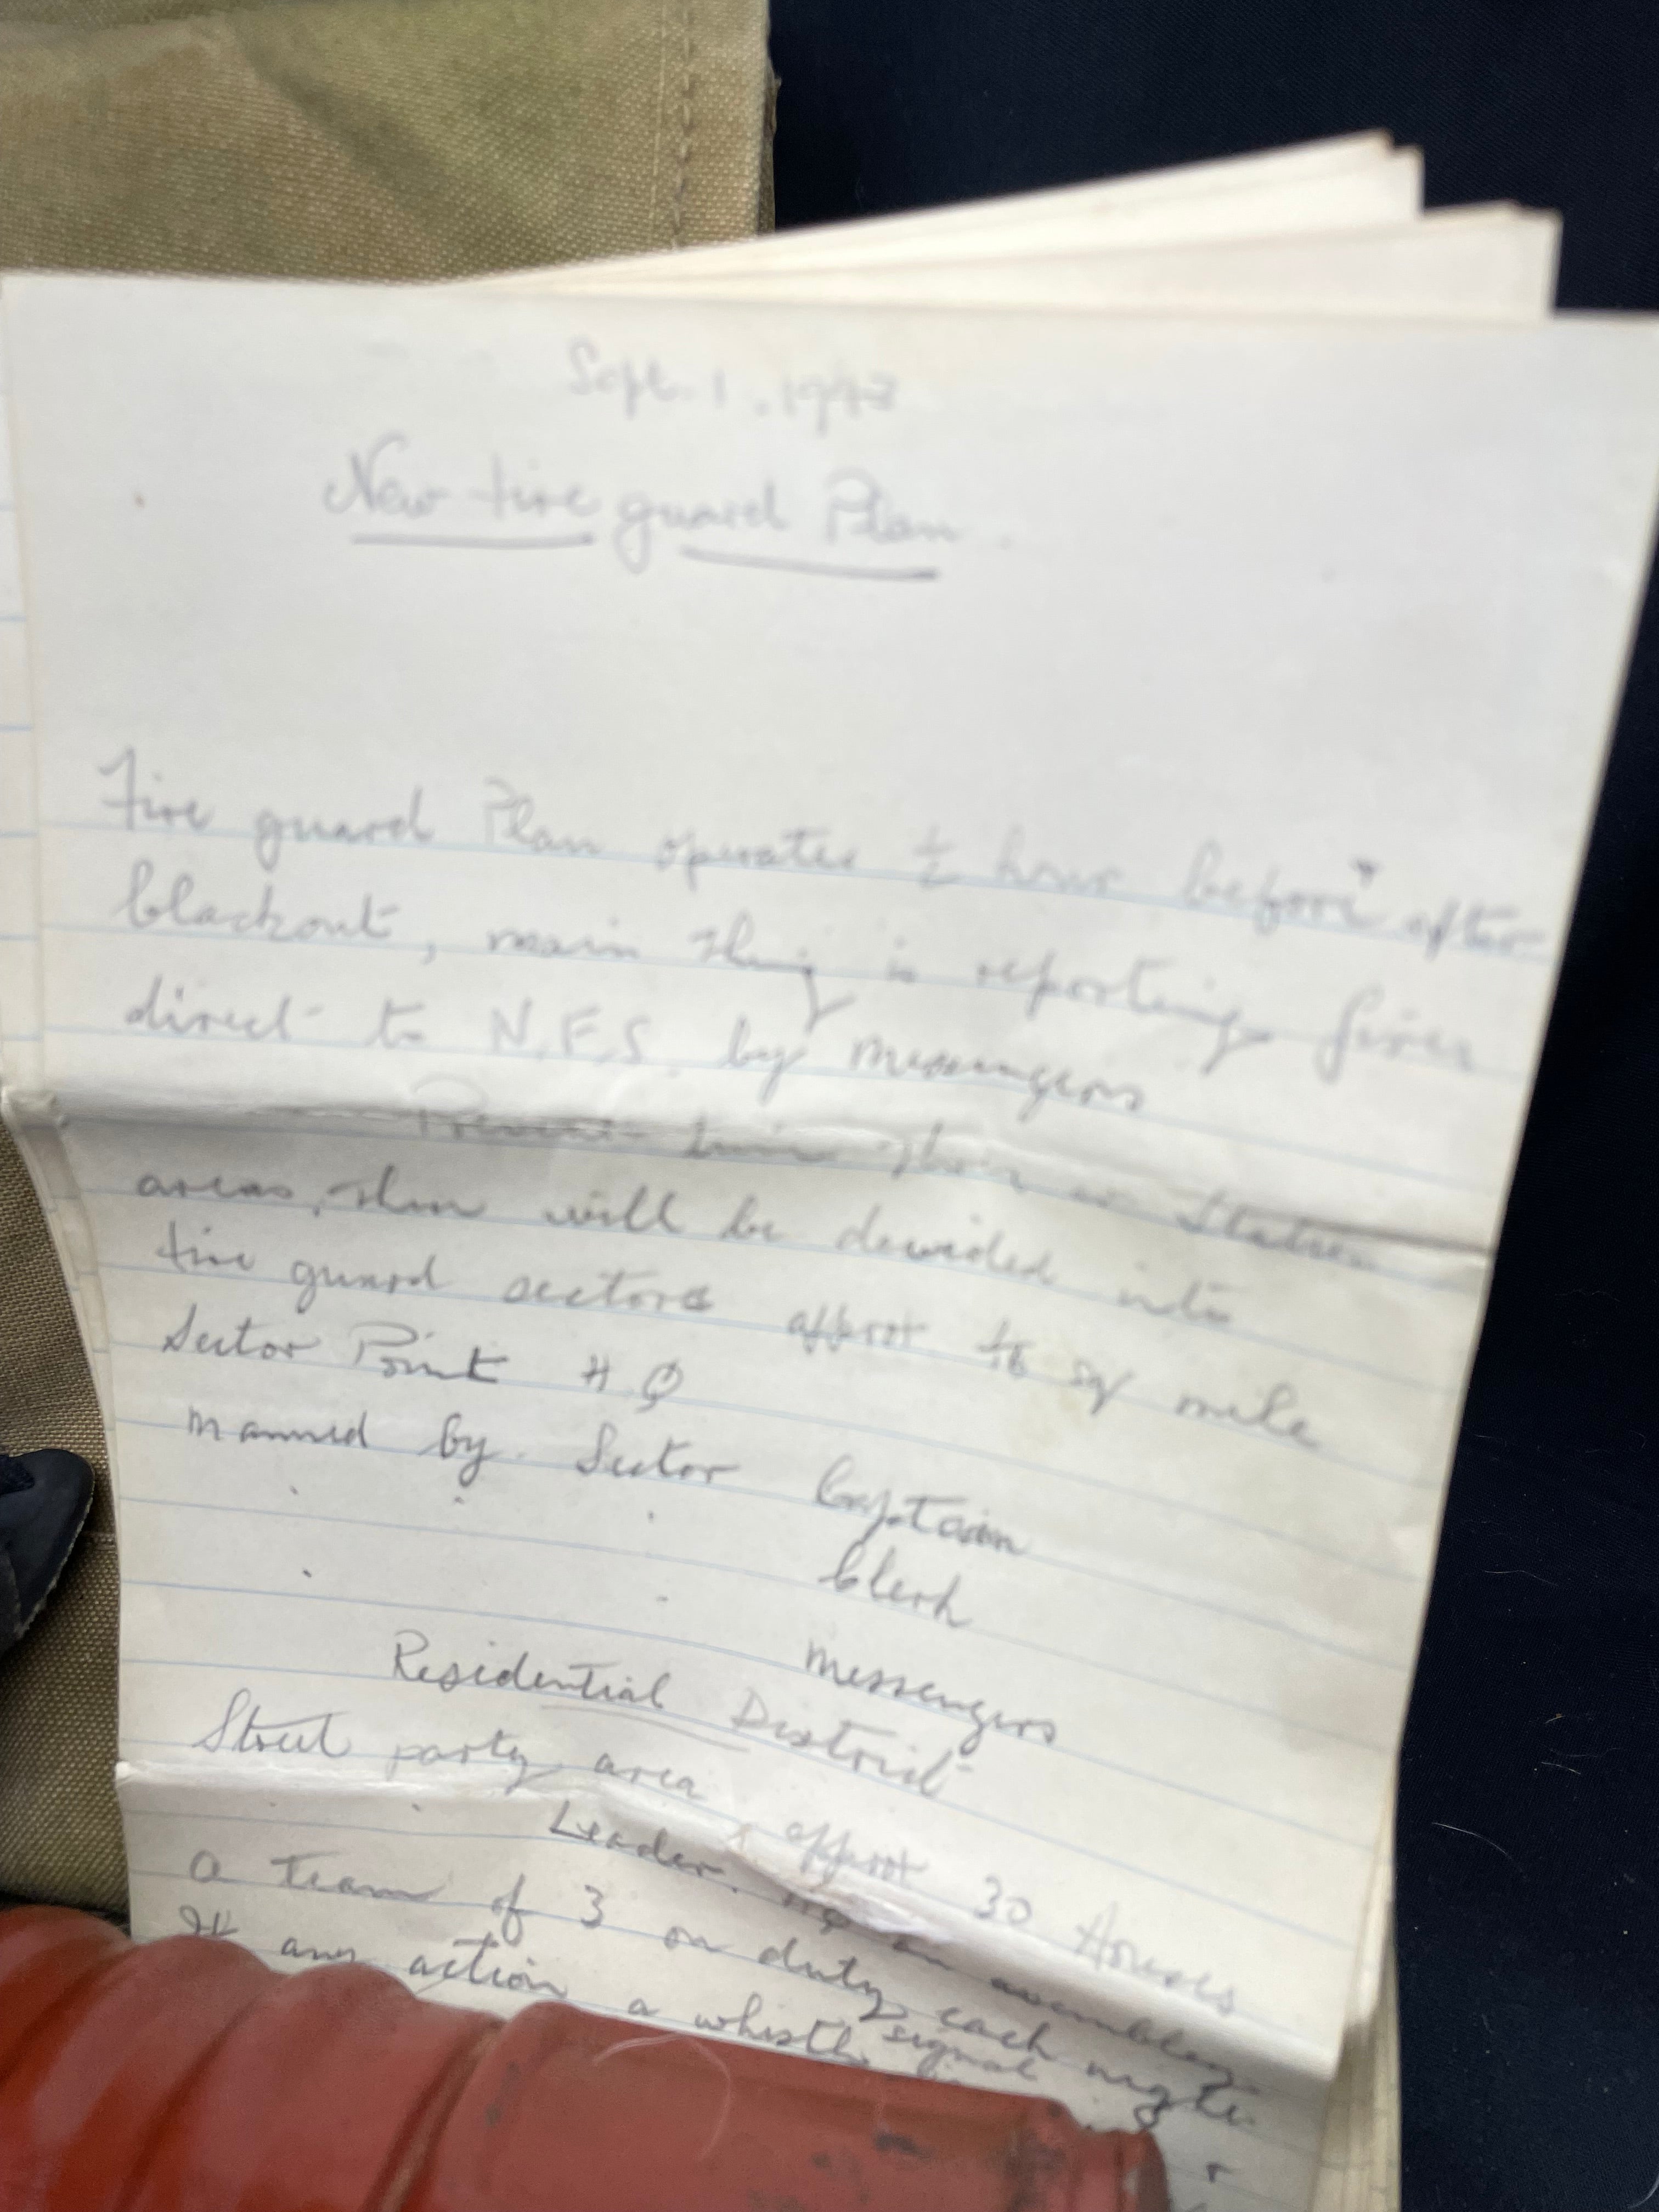 Sept. 1. 1943
New fire guard Plan.
Fire guard Plan operates ½ hour before + after
blackout, main thing is reporting fires
direct to N.F.S. by messengers
areas, then will be devided into
fire guard sectors approx sq mile
Sector Point H.Q
manned by Sector Captain
Clerk
Messengers
Residential District
Street party area approx 30 Houses
Leader. HQ an assembley
a team of 3 on duty each night
If any action a whistle signal